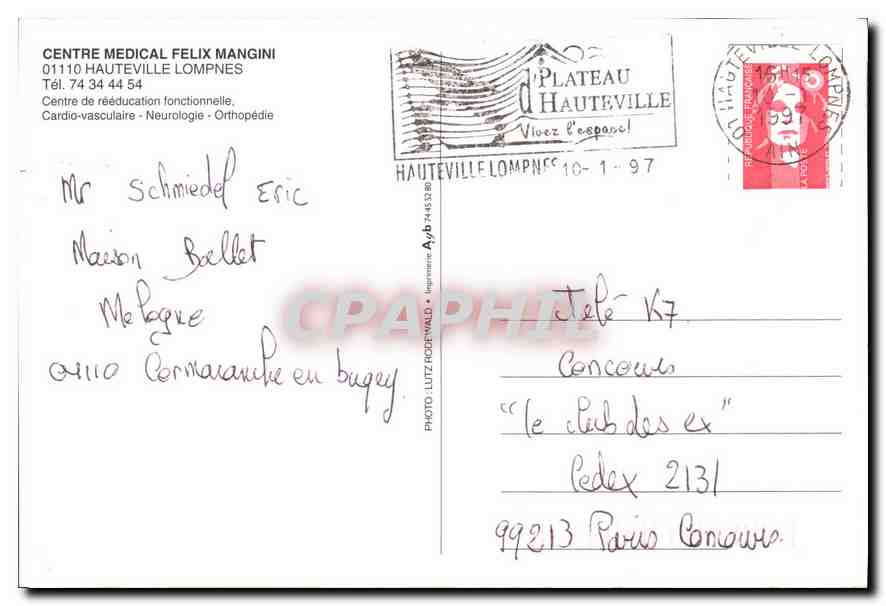 CENTRE MEDICAL FELIX MANGINI
01110 HAUTEVILLE LOMPNES
Tél. 74 34 44 54
Centre de rééducation fonctionnelle,
Cardio-vasculaire - Neurologie - Orthopédie
d'PLATEAU
d'HAUTEVILLE
Vivez l'espace!
HAUTEVILLE LOMPNES 10-1-97
01 HAUTEVILLE LOMPNES
16H15
1997
AIN
REPUBLIQUE FRANÇAISE
LA POSTE
Mr Schmiedel Eric
Maison Ballet
01110 Cormaranche en bugey
PHOTO : LUTZ RODEWALD • Imprimerie Agb 74 45 52 80
CPAPHIL
Télé K7
Concours
"le club des ex"
Cedex 2131
99213 Paris Concours